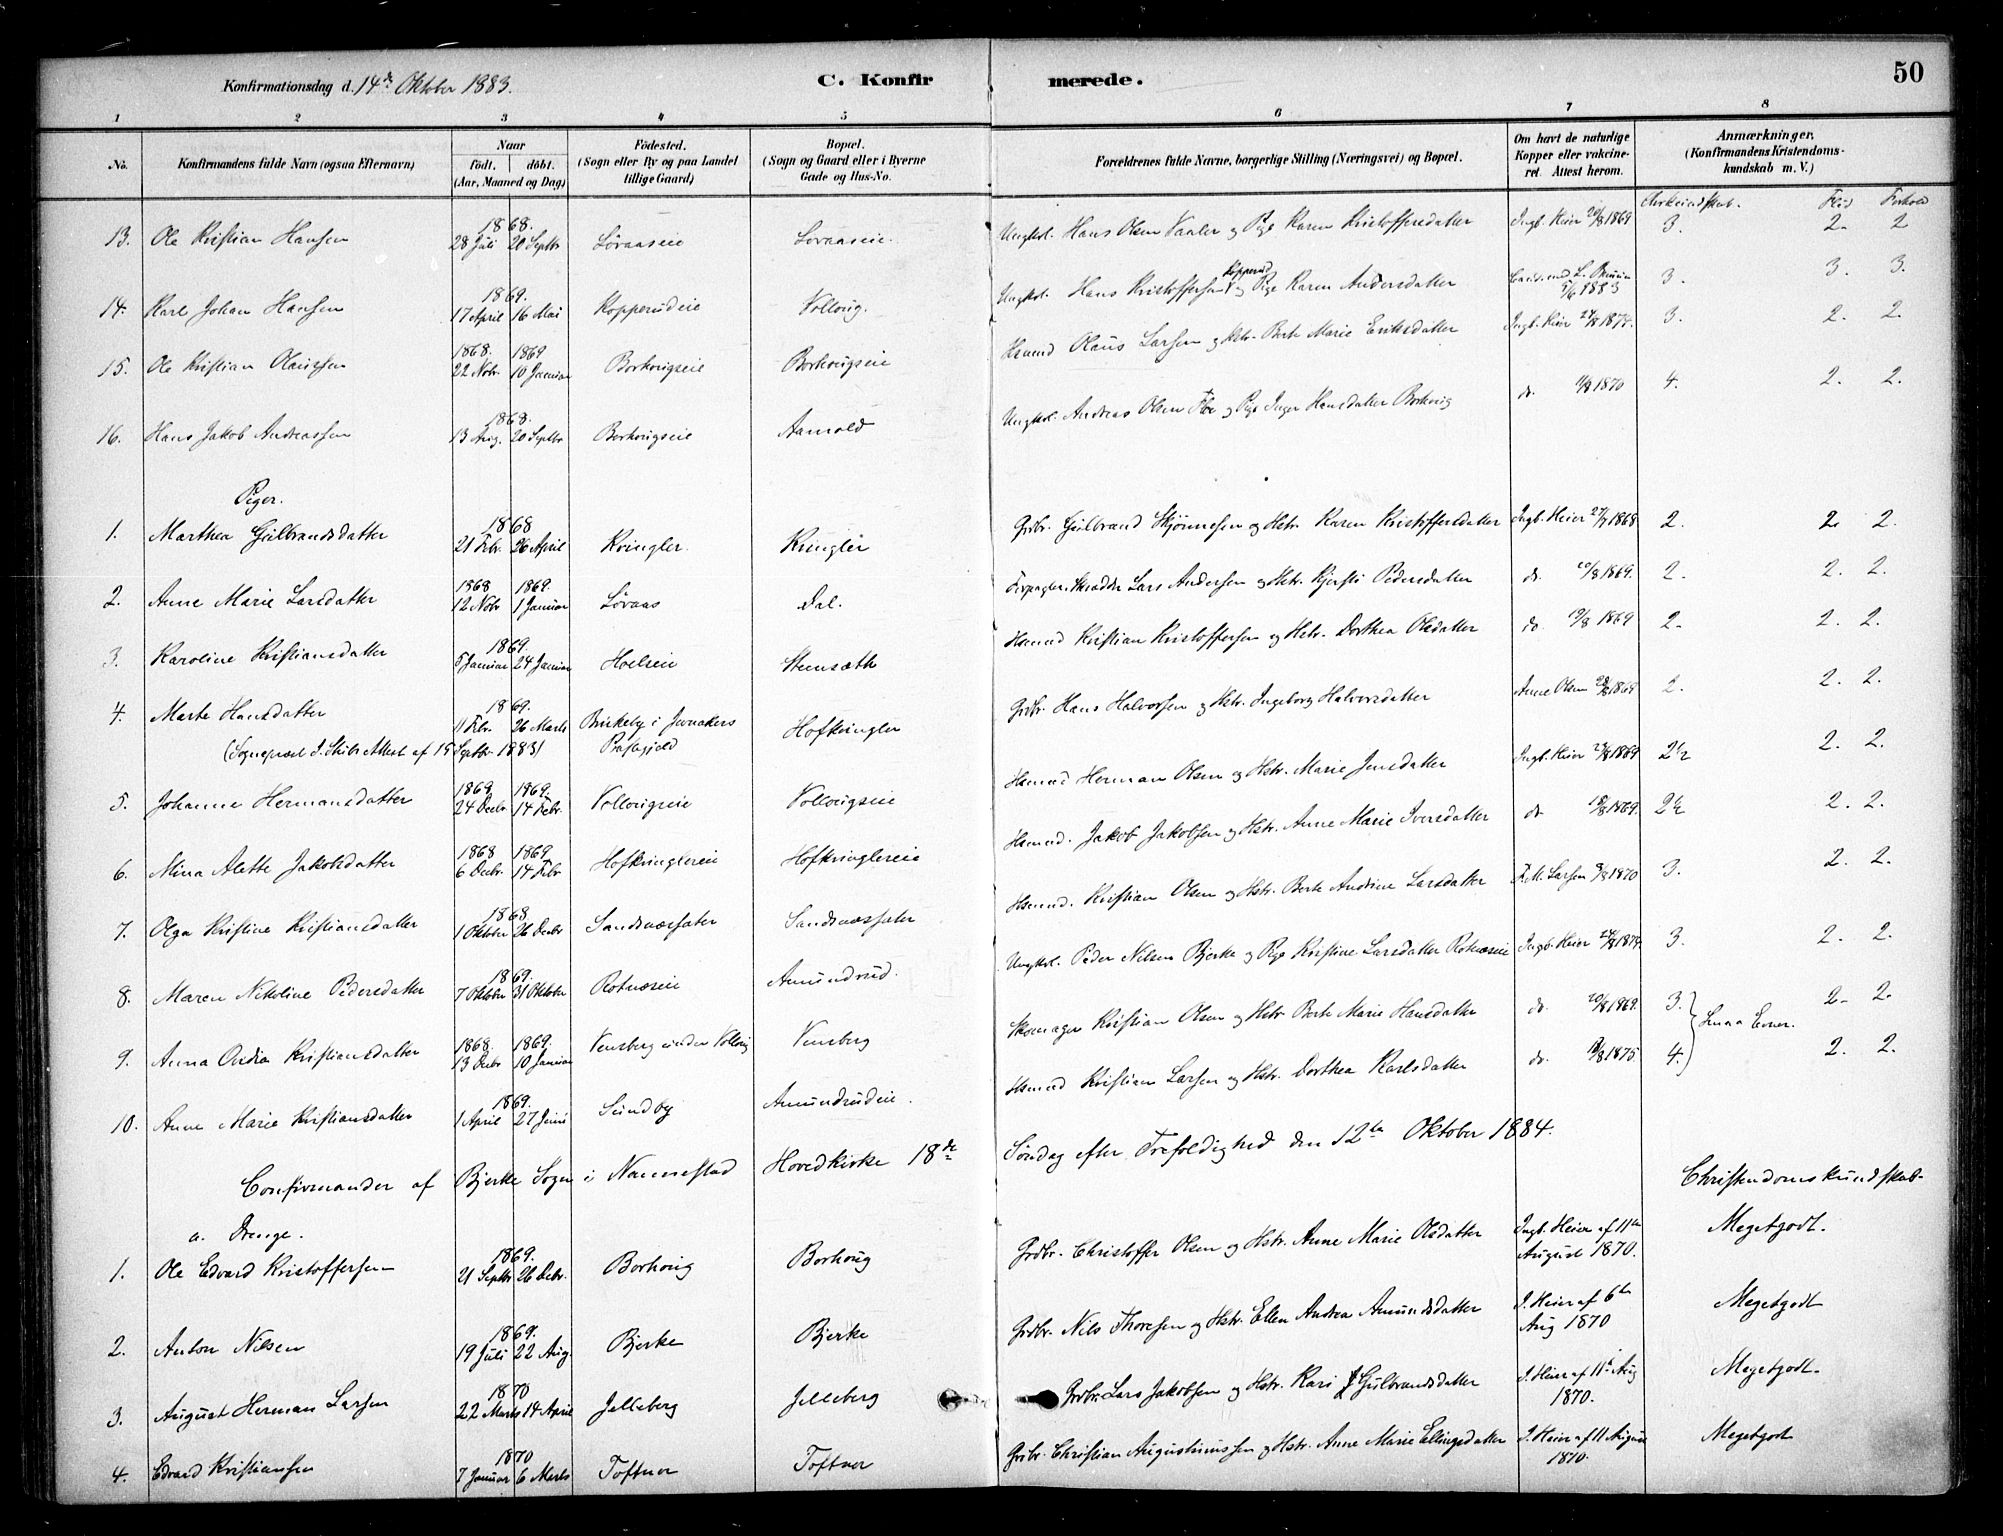 Konfirmationsdag d. 14de Oktober 1883.
C. Konfirmerede.
50
1 2 3 4 5 6 7 8
No. Konfirmandens fulde Navn (ogsaa Efternavn) Naar født. døbt. (Aar, Maaned og Dag) Födested. (Sogn eller By og paa Landet tillige Gaard) Bopæl. (Sogn og Gaard eller i Byerne Gade og Hus-No. Forældrenes fulde Navne, borgerlige Stilling (Næringsvei) og Bopæl. Om havt de naturlige Kopper eller vakcineret. Attest herom. Anmærkninger. (Konfirmandens Kristendomskundskab m. V.)
Flid Forhold
13. Ole Kristian Hansen 1868. 28 Juli 20 Septbr Lövaaseie Lovaaseie. Ungkl. Hans Olsen Vaaler og Pige Karen Kristoffersdatter Ingb. Heier 20/8 1869 3. 2. 2
14. Karl Johan Hansen 1869. 17 April 16 Mai Kopperudeie Volloug. Ungkl. Hans Kristoffersen Kopperud og Pige Karen Andersdatter 1883 3. 3. 3.
15. Ole Kristian Olaussen 1868. 22 Nobr. 1869 10 Januar Borhougseie Borhougseie Hsmnd Olaus Larsen og Hstr. Berte Marie Eriksdatter Ingb. Heier 1874. 3. 2. 2.
16. Hans Jakob Andreassen 1868. 13 Aug. 20 Septbr Borhougseie Aamold Ungkl. Andreas Olsen og Pige Inger Hansdatter Borhoug do. 1870 4. 2. 2.
Piger.
1. Marthea Gulbrandsdatter 1868 21 Febr. 26 April Kringler. Kringler Grdbr. Gulbrand Skjönnesen og Hstr. Karen Kristoffersdatter Ingb. Heier 1868 2. 2. 2.
2. Anne Marie Larsdatter 1868 12 Nobr 1869. 1 Januar Lövaas Dal. Skrædder Lars Andersen og Hstr. Kjersti Pedersdatter do. 1869. 2. 2. 2.
3. Karoline Kristiansdatter 1869. 5 Januar 24 Januar Hoelseie Stensæth Hsmnd Kristian Kristoffersen og Hstr. Dorthea Olsdatter do 1869 2. 2. 2.
4. Marte Hansdatter 1869. 11 Febr. 26 Marts Brinkeby i Jevnakers Præstegjeld Hofkringler Grdbr. Hans Halvorsen og Hstr. Ingeborg Halvorsdatter Anne Olsen 1869 2. 2. 2.
(Sognepræst J. Attest af 15 Septbr. 1883)
5. Johanne Hermansdatter 1869. 24 Decbr. 1869. 14 Febr. Vollougseie Vollougseie Hsmnd Herman Olsen og Hstr. Marie Jensdatter Ingb. Heier 1869 2½ 2. 2.
6. Mina Alette Jakobsdatter 1868 6 Decbr. 1869 14 Febr Hofkringlereie Hofkringlereie Hsmnd. Jakob Jakobsen og Hstr. Anne Marie Iversdatter do 1869. 2½ 2. 2.
7. Olga Kristine Kristiansdatter 1868 1 Oktober 26 Decbr Sandsnæssæter Sandsnæssæter Hsmnd. Kristian Olsen og Hstr. Berte Andrine Larsdatter Larsen 1870 3. 2. 2.
8. Maren Nikoline Pedersdatter 1869. 7 Oktober 31 Oktober Rotnæseie Amundrud. Ungkl. Peder Nilsen Bjerke og Pige Kristine Larsdatter Rotnæseie Ingb. Heier 1874. 3. 2. 2.
9. Anna Ovidia Kristiansdatter 1868. 13 Decbr 1869. 10 Januar Vensberg under Volloug Vensberg Skomager Kristian Olsen og Hstr Berte Marie Hansdatter do. 1869. 3. } Smaa Evner. 2. 2.
10. Anne Marie Kristiansdatter 1869. 1 April 27 Juni Sundby Amundrudeie. Hsmnd Kristian Larsen og Hstr. Dorthea Karlsdatter do. 1875. 4. 2. 2.
Confirmander af Bjerke Sogn i Nannestad Hovedkirke 18de Söndag efter Trefoldighed den 12te Oktober 1884.
Christendomskundskab.
a. Drenge.
1. Ole Edvard Kristoffersen 1869. 21 Septbr 26 Decbr. Borhoug Borhoug Grdbr. Christoffer Olsen og Hstr. Anne Marie Olsdatter Ingb. Heier af 11te August 1870. Megetgodt.
2. Anton Nilsen 1869. 19 Juli 22 Aug. Bjerke Bjerke Grdbr. Nils Thoresen og Hstr. Ellen Andrea Amundsdatter I. Heier af 6te Aug 1870 Megetgodt
3. August Herman Larsen 1870 22 Marts 14 April Jelleberg Jelleberg Grdbr. Lars Jakobsen og Hstr. Kari Gulbrandsdatter I. Heier af 11te Aug 1870. Megetgodt.
4. Edvard Kristiansen 1870 7 Januar 6 Marts Toftner Toftner Grdbr. Christian Augustinussen og Hstr. Anne Marie Ellingsdatter I. Heier af 11 August 1870. Megetgodt